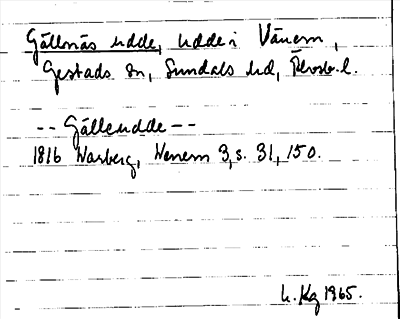 Gällnäs udde, udde i Vänern,
Gestads sn, Sundals hd, Älvsb. l.
-- Gälleudde --
1816 Warberg, Wenern 3, s. 31, 150.
L. Kg 1965.